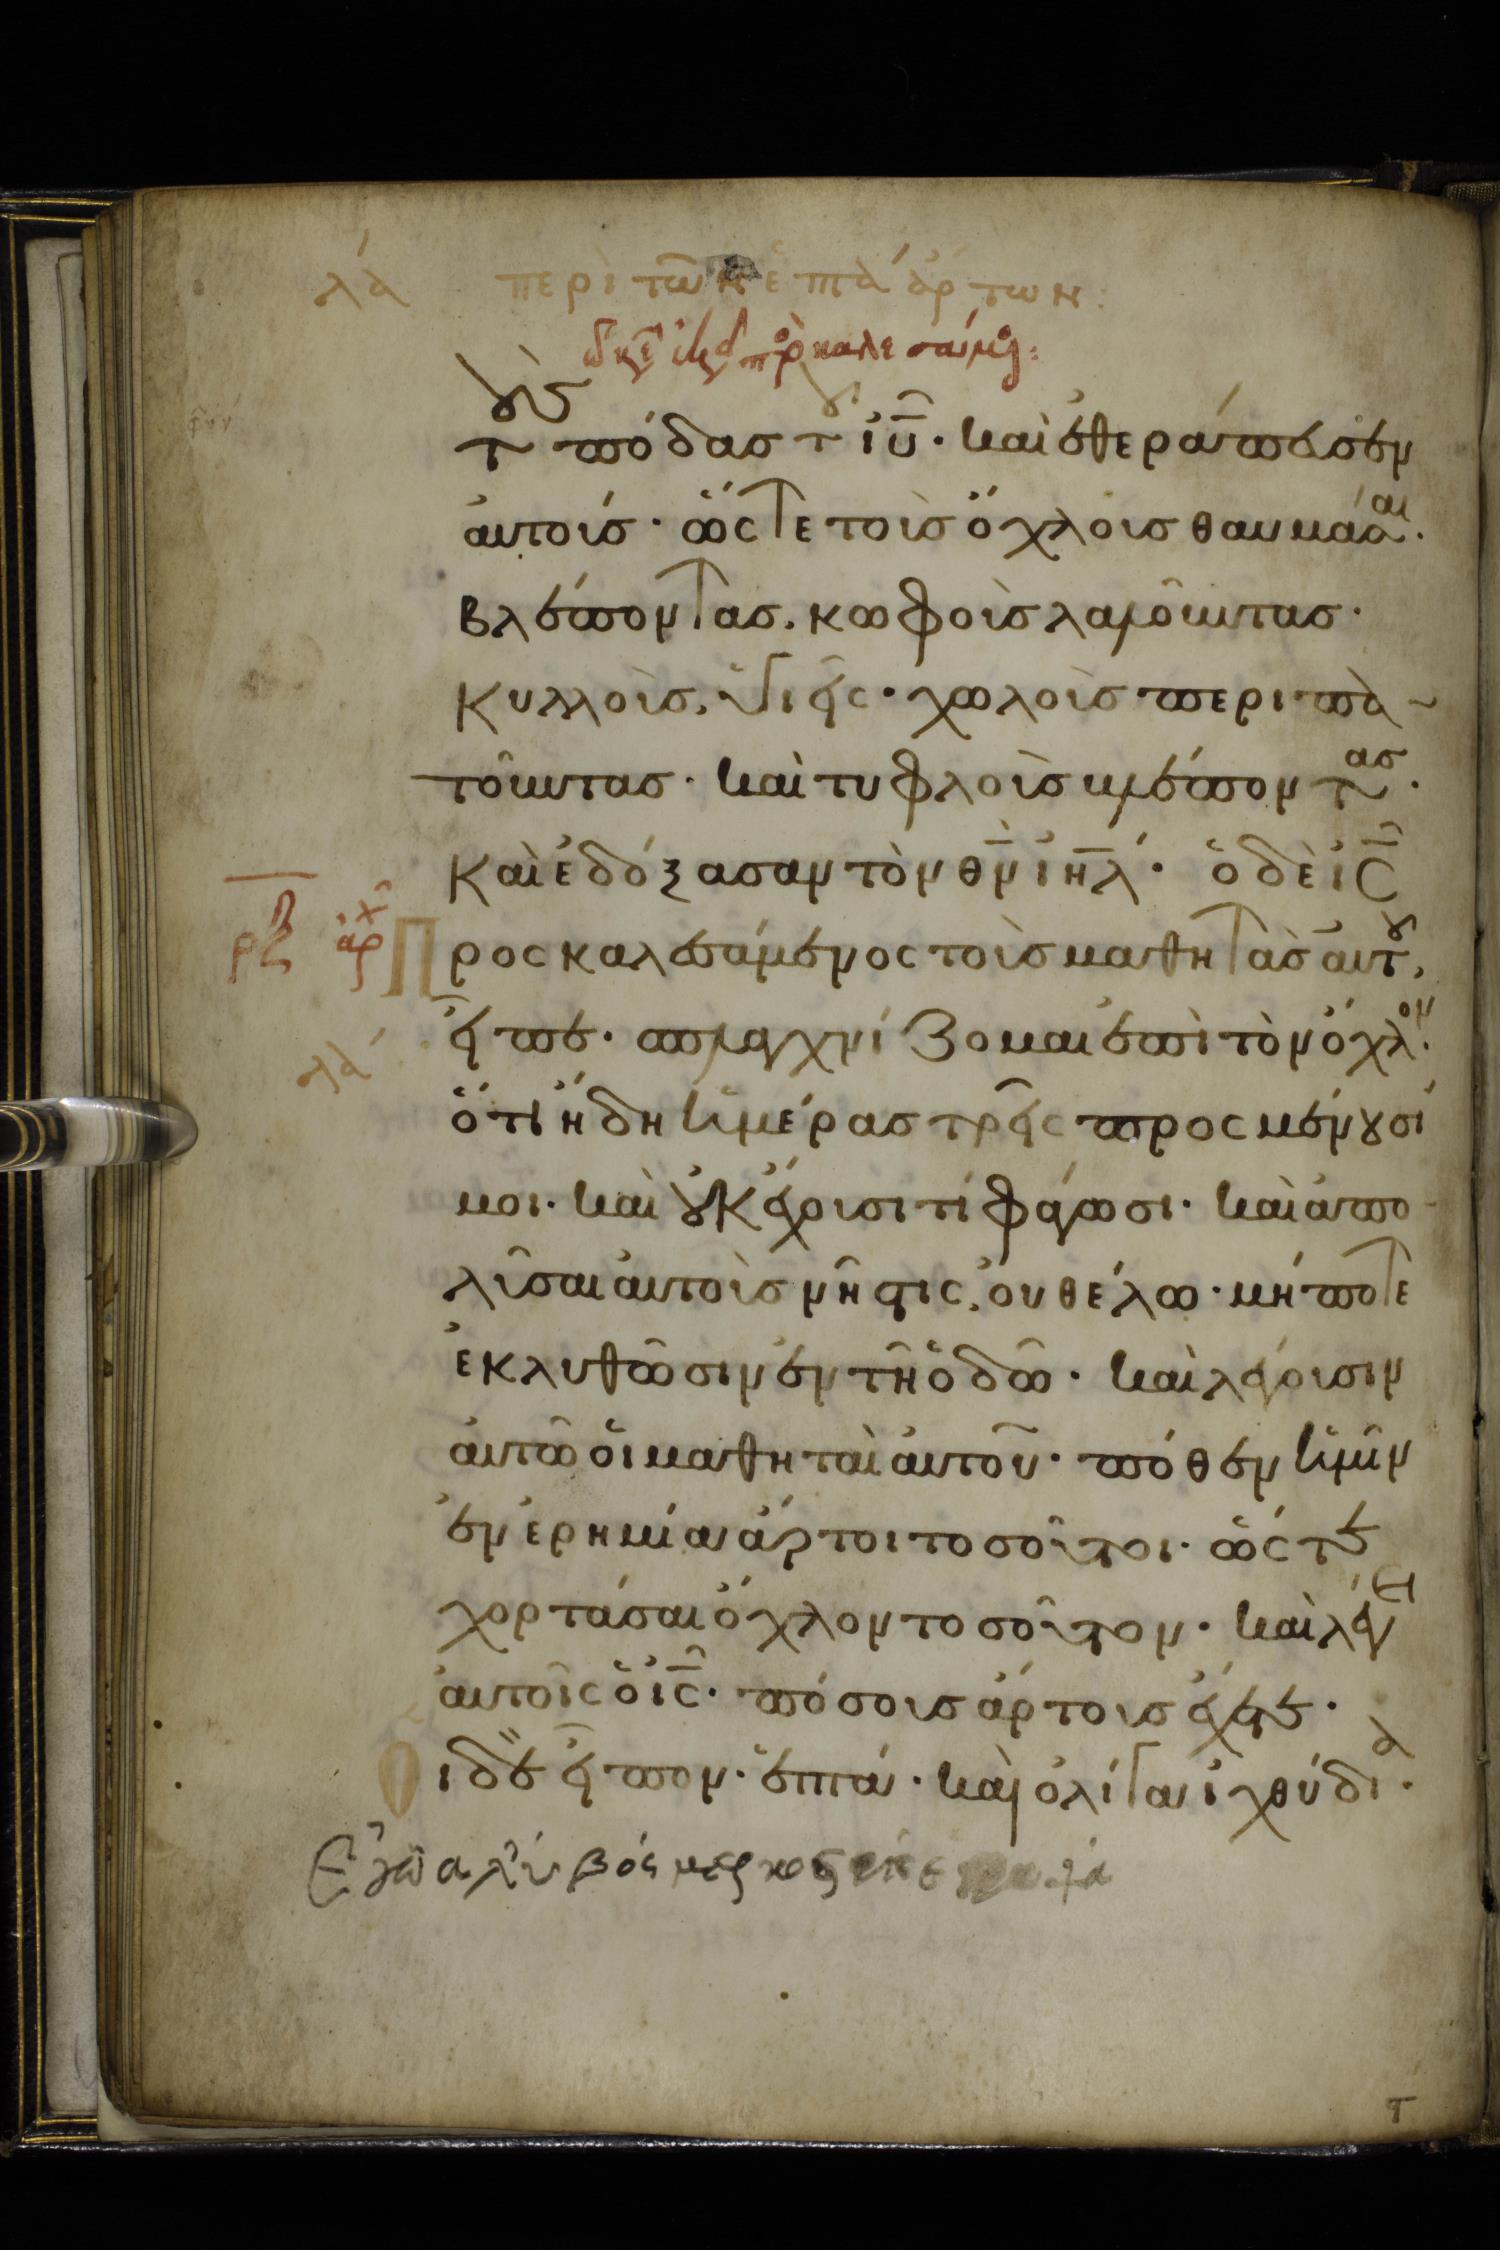 λα περὶ τῶν ἑπτὰ ἄρτων:
τοὺς πόδας τοῦ ἰυ̅· καὶ ἐθεράπευσεν
ἀυτούς· ὥστε τοὺς ὄχλους θαυμάσαι·
βλέποντας. κωφοὺς λαλοῦντας·
κυλλοὺς, ὑγιεῖς· χωλοὺς περιπα
τοῦντας· καὶ τυφλοὺς βλέποντας·
καὶ ἐδόξασαν τὸν θν̅ ἰηλ̅· ὁ δὲ ἰς̅
ρξ̅ ἀρχ προσκαλεσάμενος τοὺς μαθητὰς ἀυτοῦ,
εἶπε· σπλαγχνίζομαι ἐπὶ τὸν ὄχλον·
λα
ὅτι ἤδη ἡμέρας τρεῖς προσμένουσί
μοι· καὶ οὐκ ἔχουσι τί φάγωσι· καὶ ἀπο
λῦσαι ἀυτοὺς νήστεις, ὀυ θέλω· μήποτε
ἐκλυθῶσιν ἐν τῆ ὁδῶ· καὶ λέγουσιν
ἀυτῶ ὁι μαθηταὶ ἀυτοῦ· πόθεν ἡμῖν
ἐν ἐρημία ἄρτοι τοσοῦτοι· ὥστε
χορτάσαι ὄχλον τοσοῦτον· καὶ λέγει
ἀυτοῖς ὁ ἰς̅· πόσους ἄρτους ἔχετε·
Οἱ δὲ εἶπον· ἑπτά· καὶ ὀλίγα ἰχθύδια·